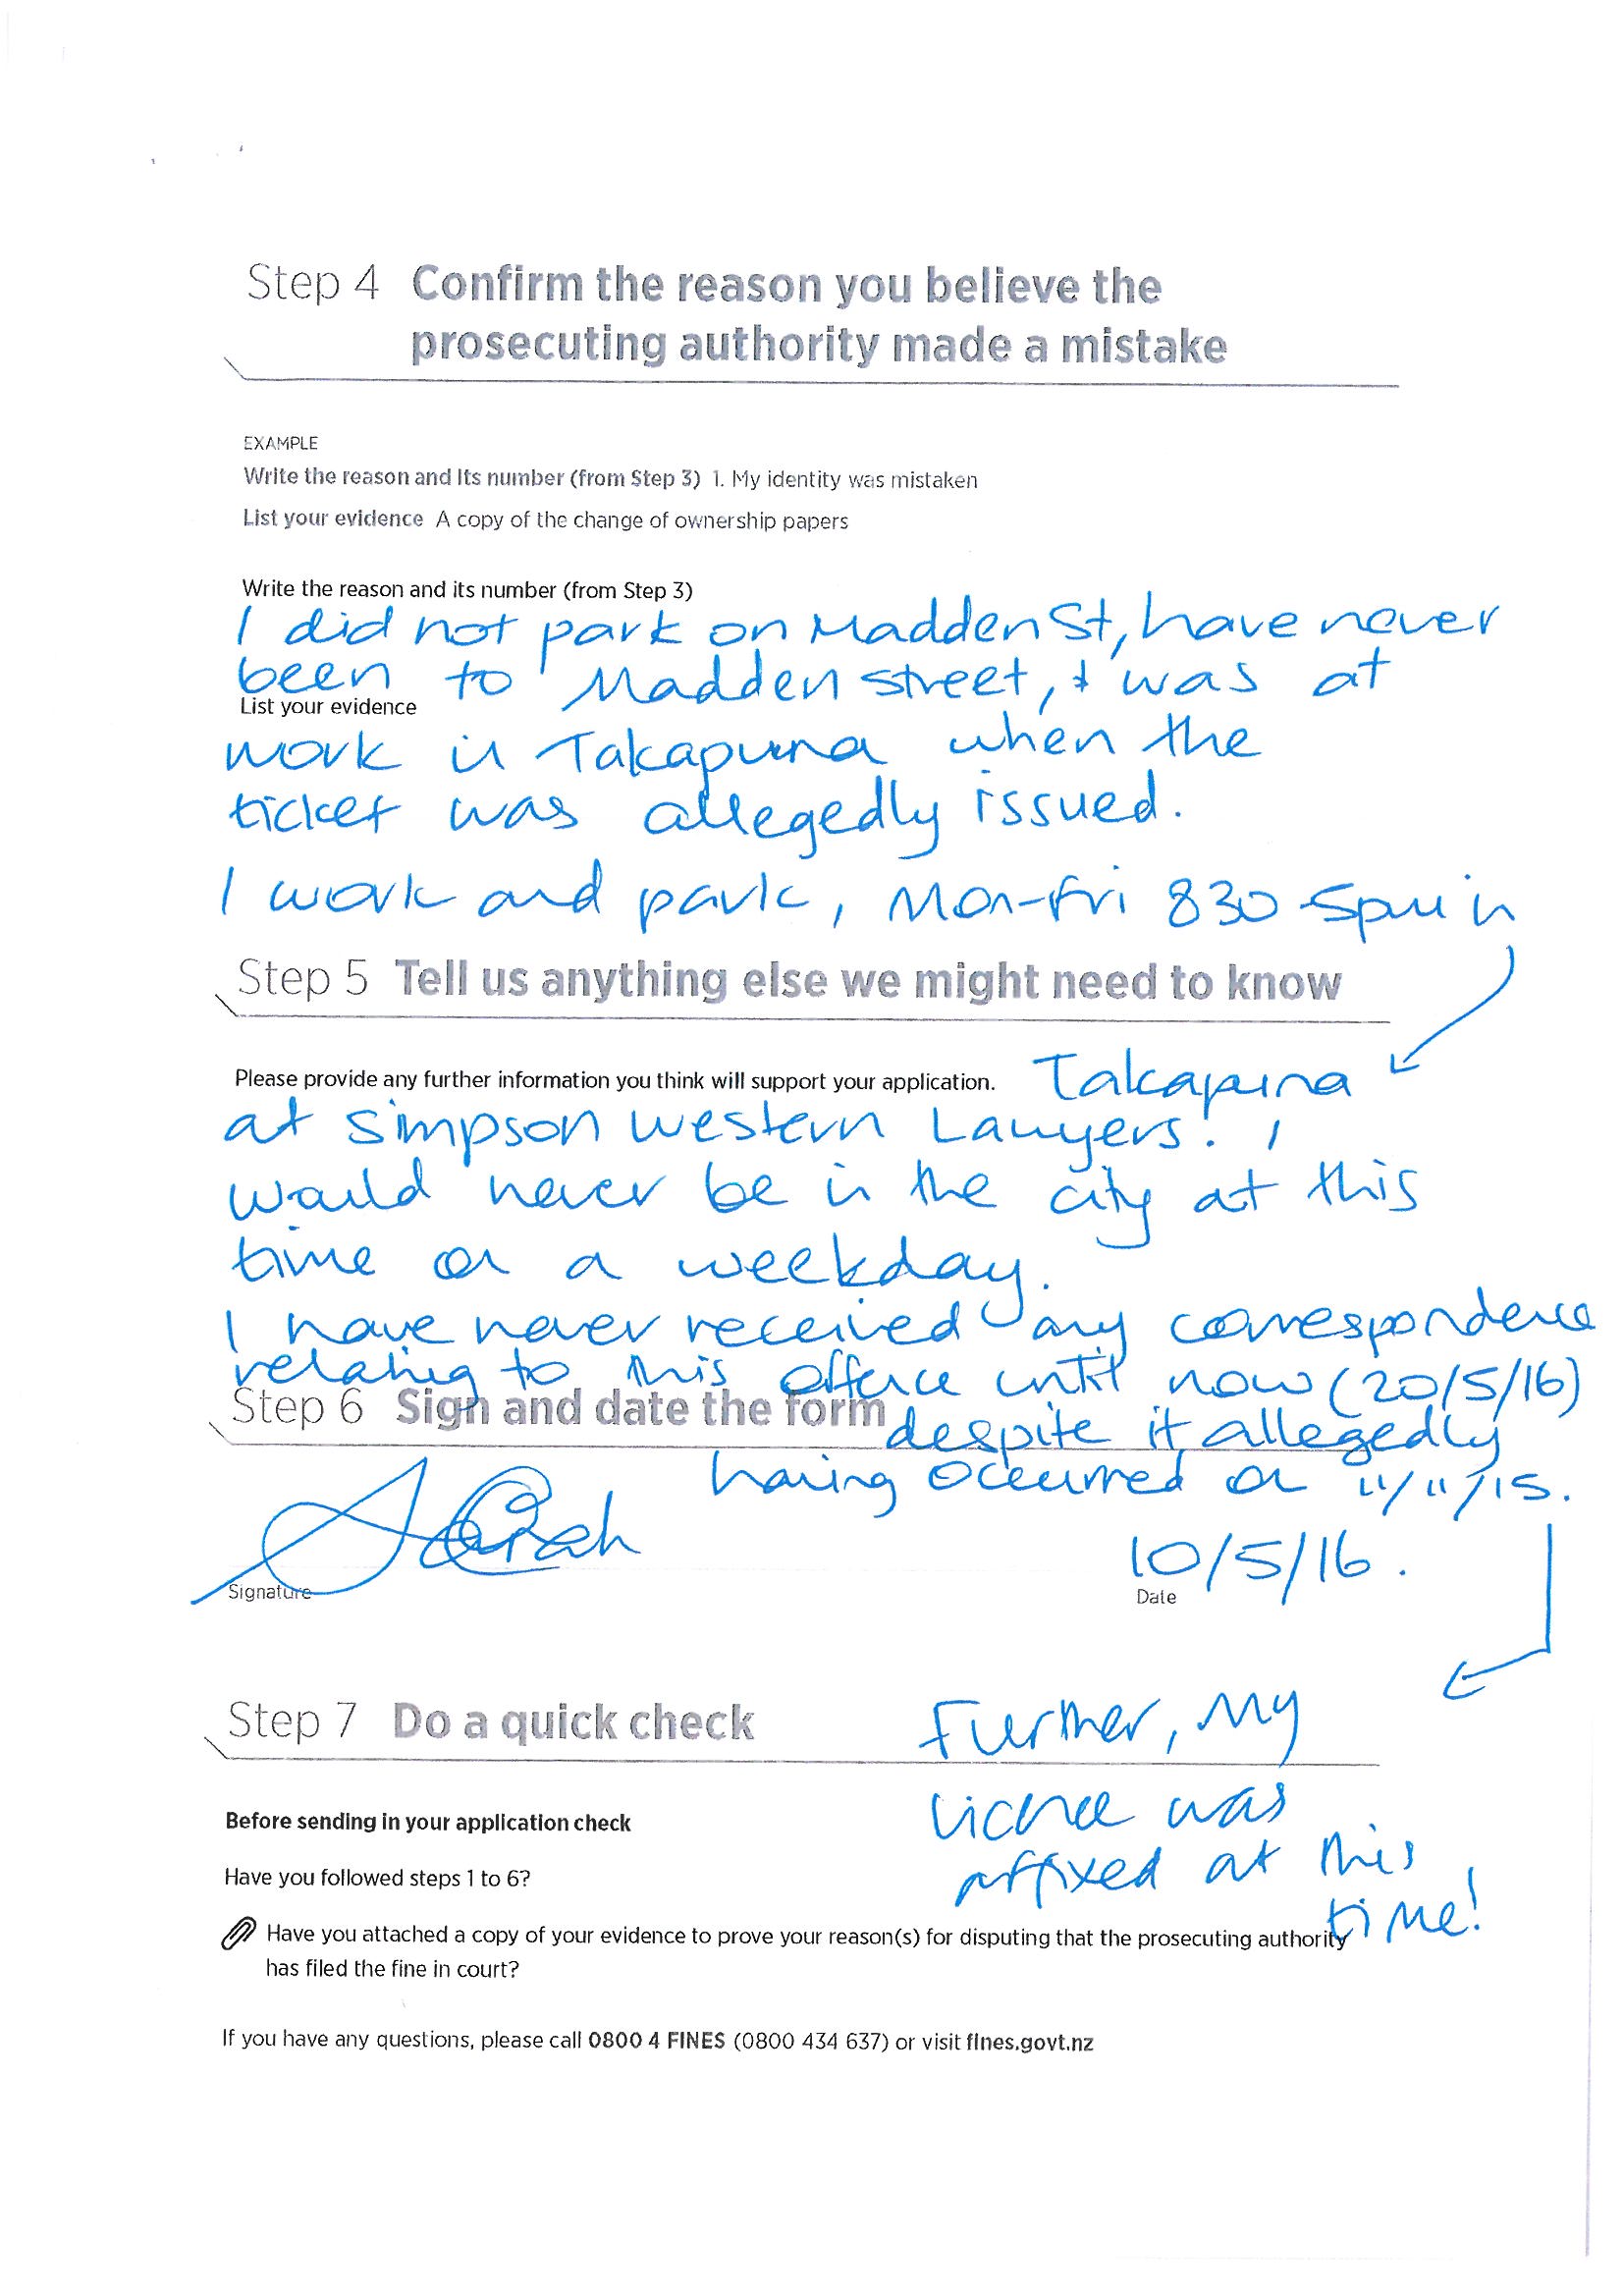 Step 4 Confirm the reason you believe the
prosecuting authority made a mistake
EXAMPLE
Write the reason and its number (from Step 3) 1. My identity was mistaken
List your evidence A copy of the change of ownership papers
Write the reason and its number (from Step 3)
I did not park on Madden St, have never
been to Madden street, & was at
List your evidence
work in Takapuna when the
ticket was allegedly issued.
I work and park, Mon-Fri 830-5pm in
Step 5 Tell us anything else we might need to know
Please provide any further information you think will support your application. Takapuna
at Simpson Western Lawyers. I
would never be in the city at this
time on a weekday.
I have never received any correspondence
relating to this offence until now (20/5/16)
Step 6 Sign and date the form
despite it allegedly
having occurred on 11/11/15.
10/5/16.
Signature
Date
Step 7 Do a quick check
Further, my
licence was
affixed at this
time!
Before sending in your application check
Have you followed steps 1 to 6?
Have you attached a copy of your evidence to prove your reason(s) for disputing that the prosecuting authority
has filed the fine in court?
If you have any questions, please call 0800 4 FINES (0800 434 637) or visit fines.govt.nz